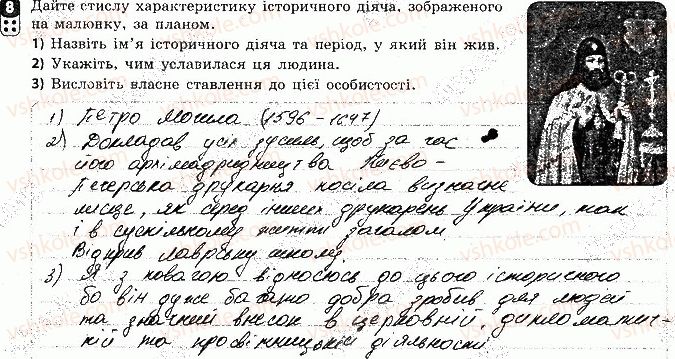 8 Дайте стислу характеристику історичного діяча, зображеного
на малюнку, за планом.
1) Назвіть ім'я історичного діяча та період, у який він жив.
2) Укажіть, чим уславилася ця людина.
3) Висловіть власне ставлення до цієї особистості.
1) Петро Могила (1596 – 1647)
2) Докладав усіх зусиль, щоб за час
його архімадридництва Києво-
Печерська друкарня носила визначне
місце, як серед інших друкарень України, так
і в суспільному житті загалом
Відкрив лаврську школу.
3) Я з повагою відносюсь до цього історичного
бо він дуже багато добра зробив для людей
та значний внесок в церковній, дипломатич-
ній та просвітницькій діяльності